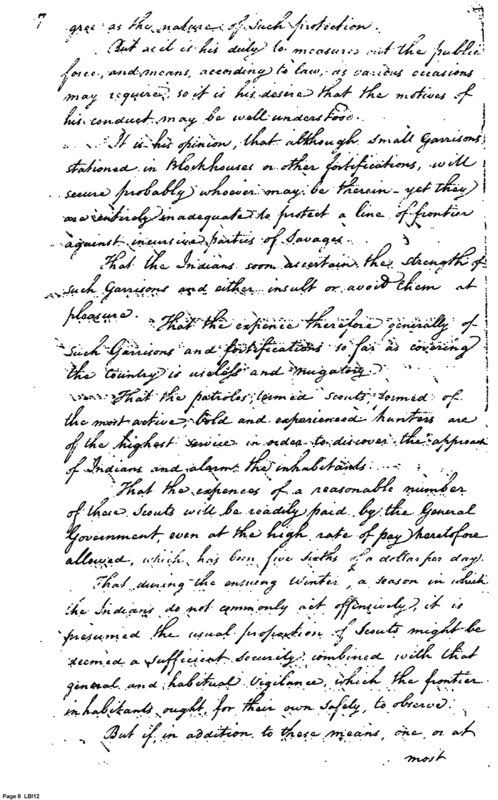 7
gree as the nature of such protection.
But as it is his duty to measure out the public
force, and means, according to law, as various occasions
may require; so it is his desire that the motives of
his conduct may be well understood.
It is his opinion, that although small Garrisons,
stationed in Blockhouses or other fortifications, will
secure probably whoever may be therein - yet they
are entirely inadequate to protect a line of frontier
against incursive parties of Savages.
That the Indians soon ascertain the strength of
such Garrisons and either insult or avoid them at
pleasure.
That the expence therefore generally of
such Garrisons and fortifications so far as covering
the country is useless and nugatory.
That the patroles termed scouts, formed of
the most active, bold and experienced hunters are
of the highest service in order to discover the approach
of Indians and alarm the inhabitants.
That the expences of a reasonable number
of these Scouts will be readily paid by the General
Government, even at the high rate of pay heretofore
allowed, which has been five sixths of a dollar per day.
That during the ensuing Winter, a season in which
the Indians do not commonly act offensively, it is
presumed the usual proportion of Scouts might be
deemed a sufficient security combined with that
general and habitual vigilance, which the frontier
inhabitants ought, for their own safety, to observe.
But if, in addition to these means, one, or at
most
Page 8 LBI12